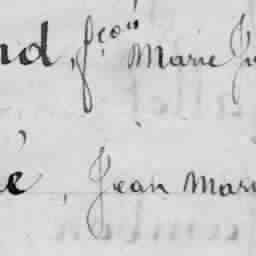 nd, fçois Marie J
é, Jean Mari